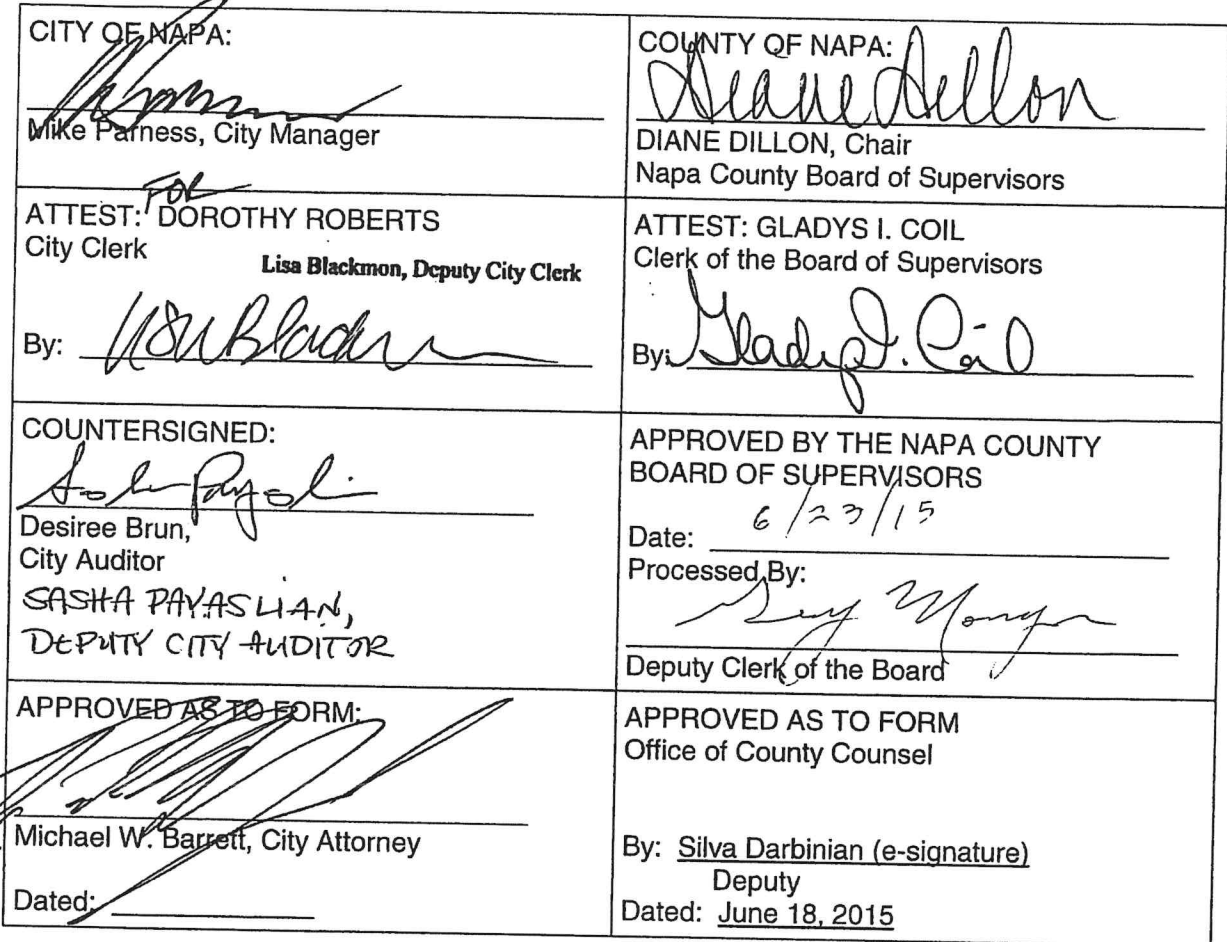 CITY OF NAPA:
Mike Parness, City Manager
COUNTY OF NAPA:
Diane Dillon
DIANE DILLON, Chair
Napa County Board of Supervisors
FOR
ATTEST: DOROTHY ROBERTS
City Clerk
Lisa Blackmon, Deputy City Clerk
By:
ATTEST: GLADYS I. COIL
Clerk of the Board of Supervisors
By: Gladys I. Coil
COUNTERSIGNED:
Desiree Brun,
City Auditor
SASHA PAYASLIAN,
DEPUTY CITY AUDITOR
APPROVED BY THE NAPA COUNTY
BOARD OF SUPERVISORS
Date: 6/23/15
Processed By:
Deputy Clerk of the Board
APPROVED AS TO FORM:
Michael W. Barrett, City Attorney
Dated:
APPROVED AS TO FORM
Office of County Counsel
By: Silva Darbinian (e-signature)
Deputy
Dated: June 18, 2015